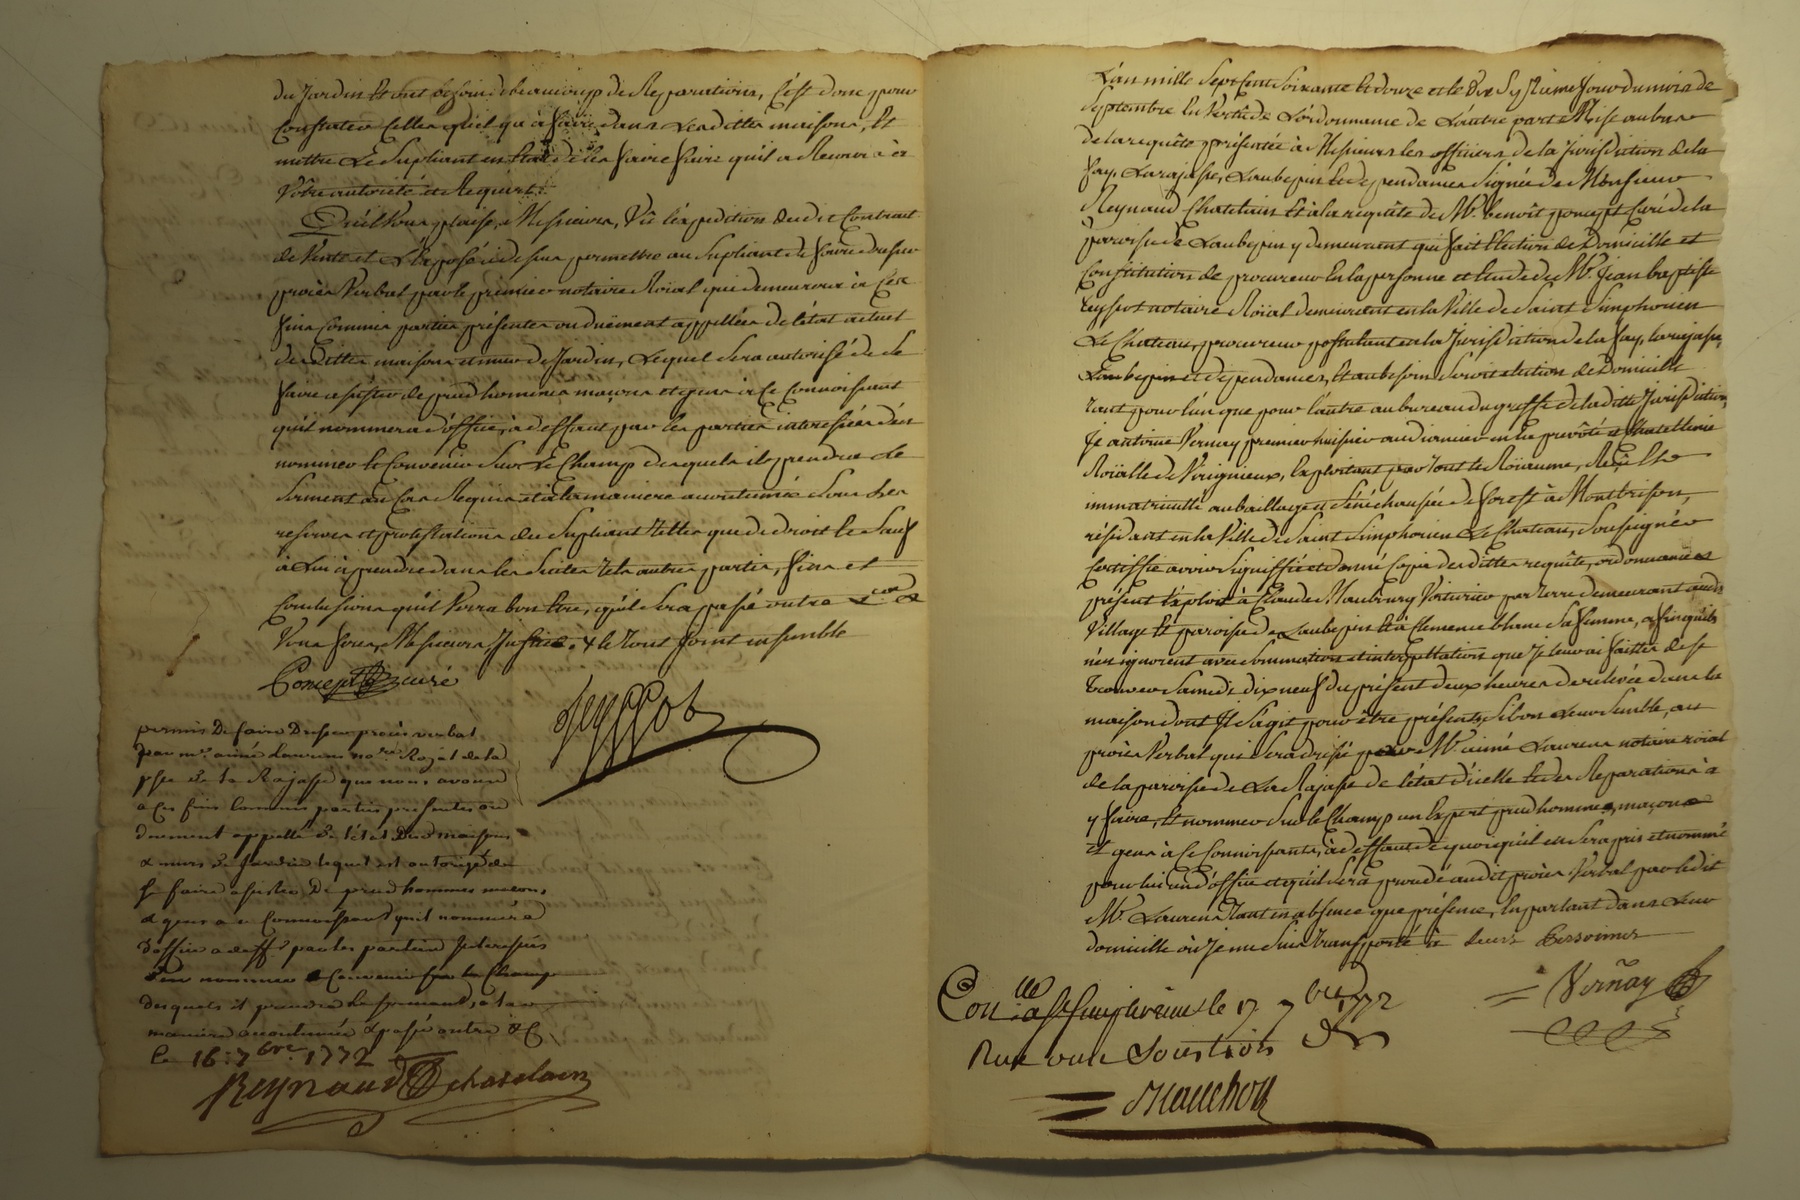 du Jardin Et ont bezoin de beaucoup de Reparations, C'est donc pour
Constater Celles qu'il y a à faire dans Lesdittes maisons, Et
mettre Le Supliant en Etat de les faire faire qu'il a Recours à
Votre autorité et Requiert.
Qu'il Vous plaise, Messieurs, Vû l'expedition dudit Contrat
de Vente et L'exposé cy dessus permettre au Supliant de faire dresser
procès Verbal par le premier notaire Roïal qui demeurera à Ces
fins Commis parties présentes ou dûement appellées de l'état actuel
desdittes maisons et murs de Jardin, Lequel Sera autorisé de Se
faire assister de prud'hommes maçons et gens à Ce Connoissant
qu'il nommera d'office, à deffaut par les parties interessées d'en
nommer et Convenir Sur Le Champ desquels il prendra Le
Serment au Cas Requis et à la maniere accoutumée Sous les
reserves et protestations du Supliant telles que de droit et Sauf
à Lui à prendre dans les Suites telles autres partis, fins et
Conclusions qu'il Verra bon Etre, qu'il Sera passé outre &
Vous ferez, Messieurs Justice. & le tout Joint ensemble
Poncept curé
Jeyssot
permis De faire Dresser procès verbal
par me. aimé Laurens nore. Royal de la
psse de la Rajasse que nous avons
a Ces fins Commis parties presentes ou
duement appellés de l'état Desd maisons
& murs de Jardin lequel est autorisé de
Se faire assister De prud hommes macons
& gens a ce Connoissant qu'il nommera
D'office a defft. par les parties Interessées
d'en nommer & Convenir sur le Champ
desquels il prendra le Serment, a la
maniere accoutumée & passé outre &C
le 16: 7bre. 1772
Reynaud chatelain
L'an mille Sept Cent Soixante Et douze et le Dix Septième Jour du mois de
Septembre En Vertu de L'ordonnance de L'autre part Mise au bas
de la requête présentée à Messieurs les officiers de la Jurisdiction de la
fay, Larajasse, Laubepin Et dependances Signée de Monsieur
Reynaud Chatelain Et à la requête de Mre. benoît poncept Curé de la
paroisse de Laubepin y demeurant qui fait Election de Domicille et
Constitution de procureur En la personne et Etude de Me. Jean baptiste
Jeyssot notaire Roïal demeurant en la Ville de Saint Simphorien
Le Chateau, procureur postulant en la Jurisdiction de la fay, larajasse,
Laubepin et dependances, Et au besoin Seroit election de Domicille
tant pour l'un que pour l'autre au bureau du greffe de laditte Jurisdiction,
Je antoine Vernay premier huissier audiancier en la prevôté et Chatellenie
Roïalle de Virigneux, Exploitant par tout le Roïaume, Reçû Et
immatriculé au baillage et Sénéchaussée de forest à Montbrison,
résidant en la Ville de Saint Simphorien Le Chateau, Soussigné
Certiffie avoir Signiffié et donné Copie desdittes requête, ordonnance et
présent Exploit à Claude Maubourg Voiturier par terre demeurant audit
Village Et paroisse de Laubepin Et à Clemence blanc Sa femme, a fin qu'ils
n'en ignorent avec Sommation et interpellation que Je leur ai faittes de Se
trouver Samedi dix neuf du présent deux heures de relevée dans la
maison dont Il S'agit pour être présents, Si bon Leur Semble, au
procès Verbal qui Sera dressé par Me aimé Laurens notaire roïal
de la paroisse de La Rajasse de l'état d'icelle Et des Reparations à
y faire, Et nommer Sur le Champ un Expert prud'hommes, maçons
Et gens à Ce Connoissants, à deffaut de quoi qu'il en Sera pris et nommé
pour lui un d'office et qu'il Sera procedé audit procès Verbal par ledit
Me. Laurens tant en absence que présence, En parlant dans Leur
domicille où Je me Suis transporté à leurs Personnes
Vernay
Conlle. a St Simphorien le 17 7bre 1772